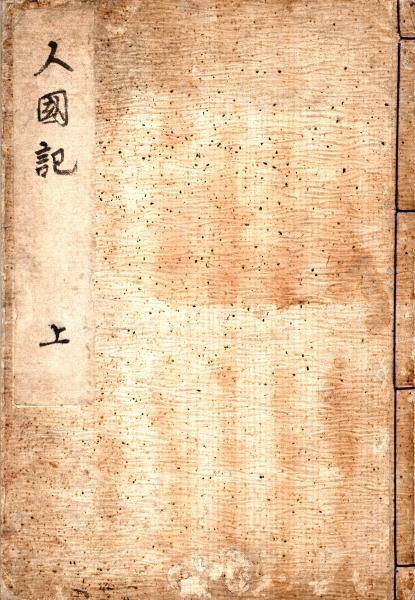 人國記 上